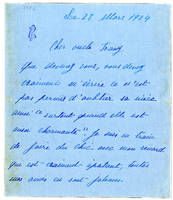 Le 28 Mars 1924
Cher oncle
que devenez vous, vous devez
vraiment
pas permis d'oublier sa nièce
surtout quand elle est
aussi charmante" Je suis en train
de faire du chic avec mon renard
qui est vraiment épatant, toutes
mes amies en sont jalouses